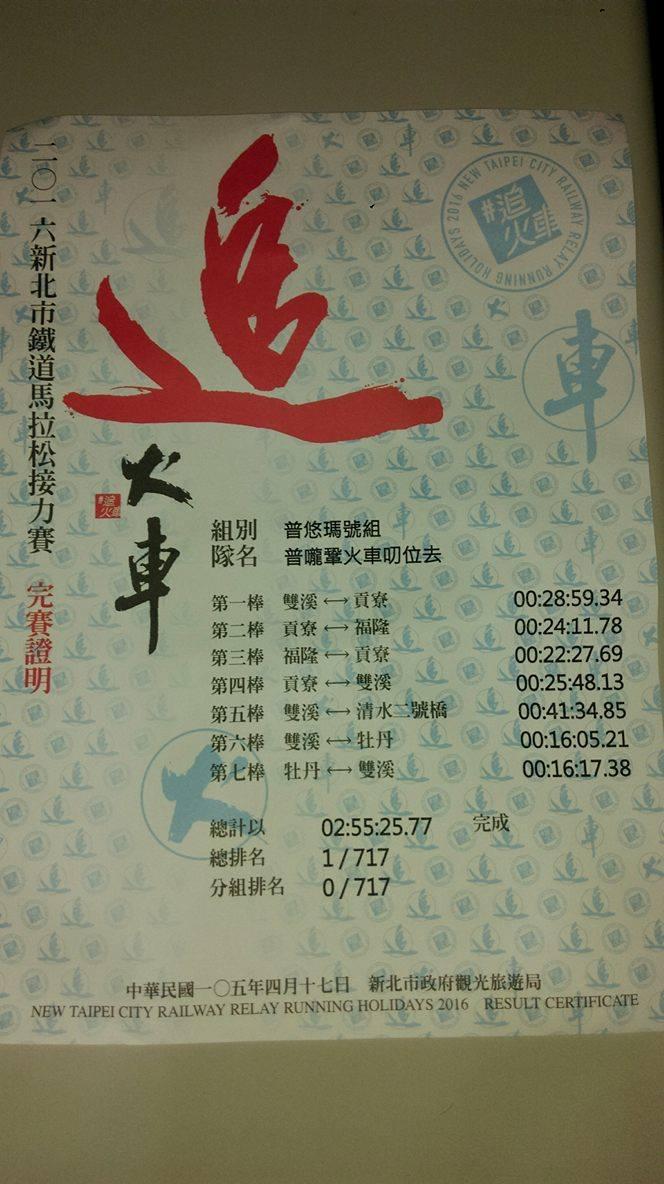 二〇一六新北市鐵道馬拉松接力賽 完賽證明
追
火車
#追火車
2016 NEW TAIPEI CITY RAILWAY RELAY RUNNING HOLIDAYS
#追火車
車
火
組別 普悠瑪號組
隊名 普嚨鞏火車叨位去
第一棒 雙溪 ⟷ 貢寮 00:28:59.34
第二棒 貢寮 ⟷ 福隆 00:24:11.78
第三棒 福隆 ⟷ 貢寮 00:22:27.69
第四棒 貢寮 ⟷ 雙溪 00:25:48.13
第五棒 雙溪 ⟷ 清水二號橋 00:41:34.85
第六棒 雙溪 ⟷ 牡丹 00:16:05.21
第七棒 牡丹 ⟷ 雙溪 00:16:17.38
總計以 02:55:25.77 完成
總排名 1 / 717
分組排名 0 / 717
中華民國一〇五年四月十七日 新北市政府觀光旅遊局
NEW TAIPEI CITY RAILWAY RELAY RUNNING HOLIDAYS 2016 RESULT CERTIFICATE